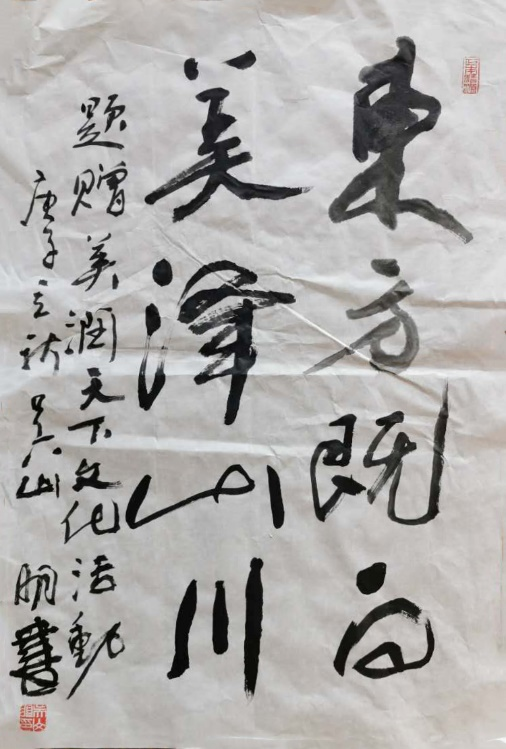 東方既白
美澤山川
題贈美潤天下文化活動
庚子立秋 吴山明書